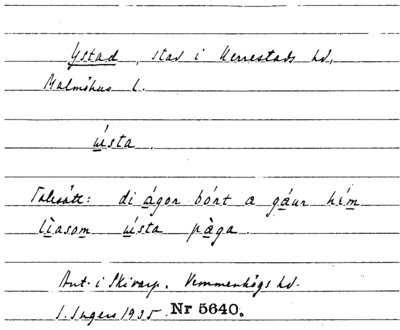 Ystad, stad i Herrestads hd,
Malmöhus l.
ústa.
Talesätt: di ágor bórt a gáur hím
lìasom ústa pàga.
Ant. i Skivarp, Vemmenhögs hd.
I. Ingers 1935. Nr 5640.